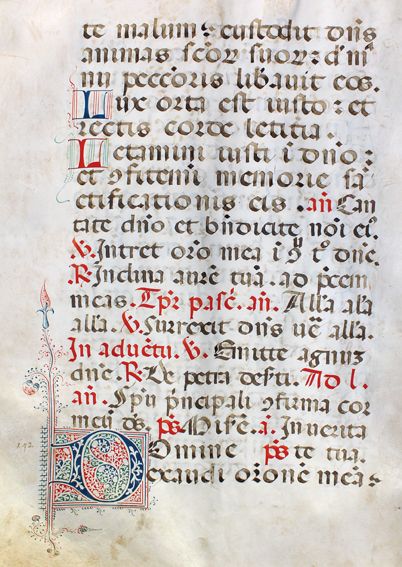 te malum : custodit dn̄s
animas scōꝝ suoꝝ : d' ma
nu peccoris libauit eos.
Lux orta est iusto : et
rectis corde letitia .
Letamini iusti ī dn̄o :
et ꝯfitemī memorie sā
ctificationis eius . an̄. Can
tate dn̄o et bn̄dicite noī eꝰ.
℣. Intret oro mea ī t' dn̄e.
℟. Inclina aurē tuā. ad p̄cem
meas. Tp̄r pasc̄. an̄. All'a all'a
all'a. ℣. Surrexit dn̄s ue̅ all'a.
In aduētu. ℣. Emitte agnuꝫ
dn̄e. ℟. De petra deṡti. Ad l.
an̄. Spū p̄ncipali ꝯfirma cor
meū ds̄. ps̄. Mise̅. a̅. In uerita
Domine ps̄ te tua.
exaudi orōne̅ mea